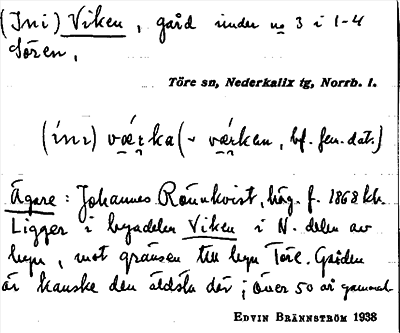 (Ini) Viken, gård under no 3 i 1-4
Sören.
Töre sn, Nederkalix tg, Norrb. l.
(íni) vǽ̣rka (~ vǽ̣rkan, bf. fem. dat.)
Ägare: Johannes Rönnkvist, häg. f. 1868 kb.
Ligger i byadelen Viken i N. delen av
byn, mot gränsen till byn Töre. Gården
är kanske den äldsta där; över 50 år gammal.
EDVIN BRÄNNSTRÖM 1938